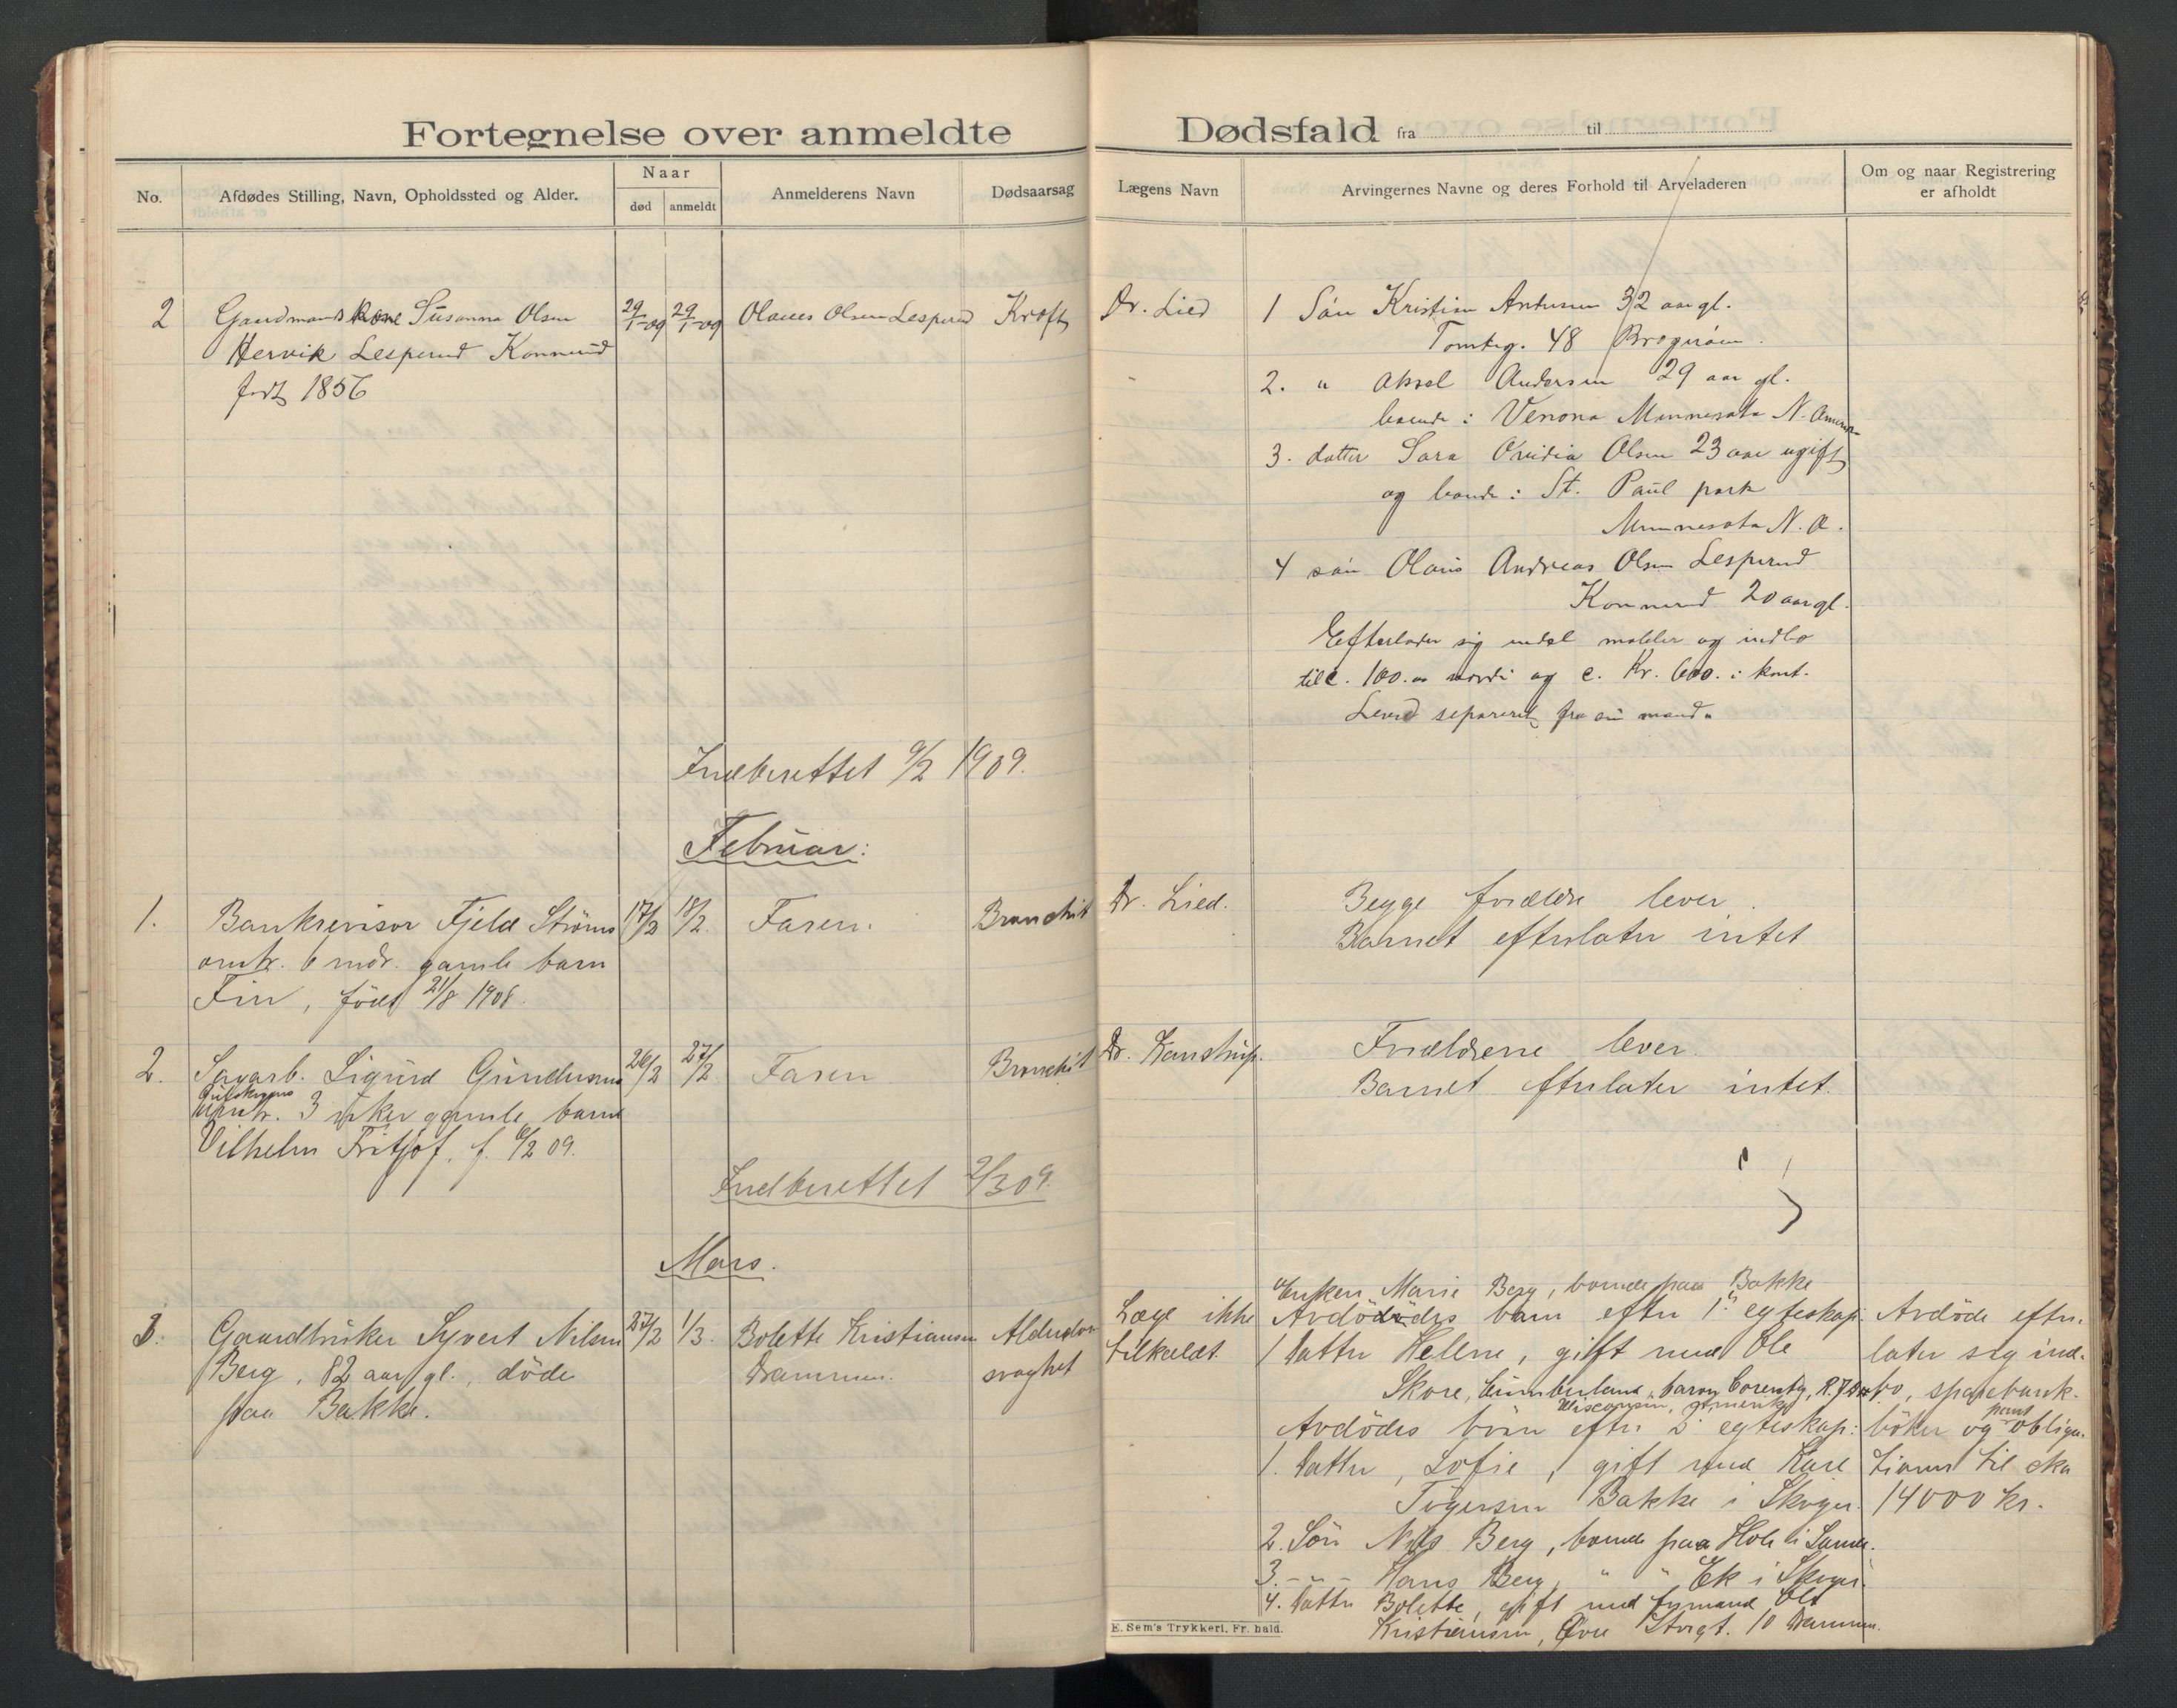 Fortegnelse over anmeldte Dødsfald fra til
No. Afdødes Stilling, Navn, Opholdssted og Alder. Naar død anmeldt Anmelderens Navn Dødsaarsag Lægens Navn Arvingernes Navne og deres Forhold til Arveladeren Om og naar Registrering er afholdt
2 Gaardmandskone Susanna Olsen
Hervik Lesperud Konnerud
født 1856
29/1-09 29/1-09 Olaves Olsen Lesperud Kræft Dr. Lied
1 Søn Kristian 32 aar gl.
Tomteg. 48 Bragerøen.
2. " Aksel Andersen 29 aar gl.
boende: Venona Minnesota N. Amerika
3. datter Sara Ovidia Olsen 23 aar ugift
og boende: St. Paul park
Minnesota N. A.
4 søn Olaus Andreas Olsen Lesperud
Konnerud 20 aar gl.
Efterlader sig møbler og indbo
til c. 100.00 værdi og c. Kr. 600. i kont.
Leved separeret fra sin mand.
Indberettet 9/2 1909.
Februar:
1. Bankrevisor Fjeld Strøms
omtr. 6 mdr. gamle barn
Fin, født 21/8 1908.
17/2 18/2. Faren. Bronchit Dr. Lied.
Begge forældre lever.
Barnet efterlater intet
2. Sagarb. Sigurd Gundersens
omtr. 3 uker gamle barn
Vilhelm Fritjof. f. 6/2 09.
26/2 27/2 Faren Bronchit Dr. Kanstrup.
Forældrene lever.
Barnet efterlater intet.
Indberettet 2/3 09.
Mars.
3. Gaardbruker Syvert Nilsen
Berg, 82 aar gl., døde
paa Bakke.
27/2 1/3. Bolette Kristiansen
Drammen.
Alderdom
svaghet
Læge ikke
tilkaldt.
Enken Marie Berg, boende paa Bakke
Avdødes barn efter 1ste egteskap:
1 datter Helene, gift med Ole
Skore, Cumberland, Baron County, R.F.D.
Wisconsin, Amerika
Avdødes børn efter 2 egteskap:
1. datter, Sofie, gift med Kare
Tøgersen Bakke i Skoger.
2. Søn Nils Berg, boende paa Hole i Sande.
3. - " - Hans Berg, " " Ek i Skoger.
4. datter Bolette, gift med fyrmand Ole
Kristiansen, Øvre Storgt. 10 Drammen.
Avdøde efter-
later sig ind-
bo, sparebank-
bøker og pant obliga-
tioner til cka
14000 kr.
E. Sem's Trykkeri, Fr. hald.